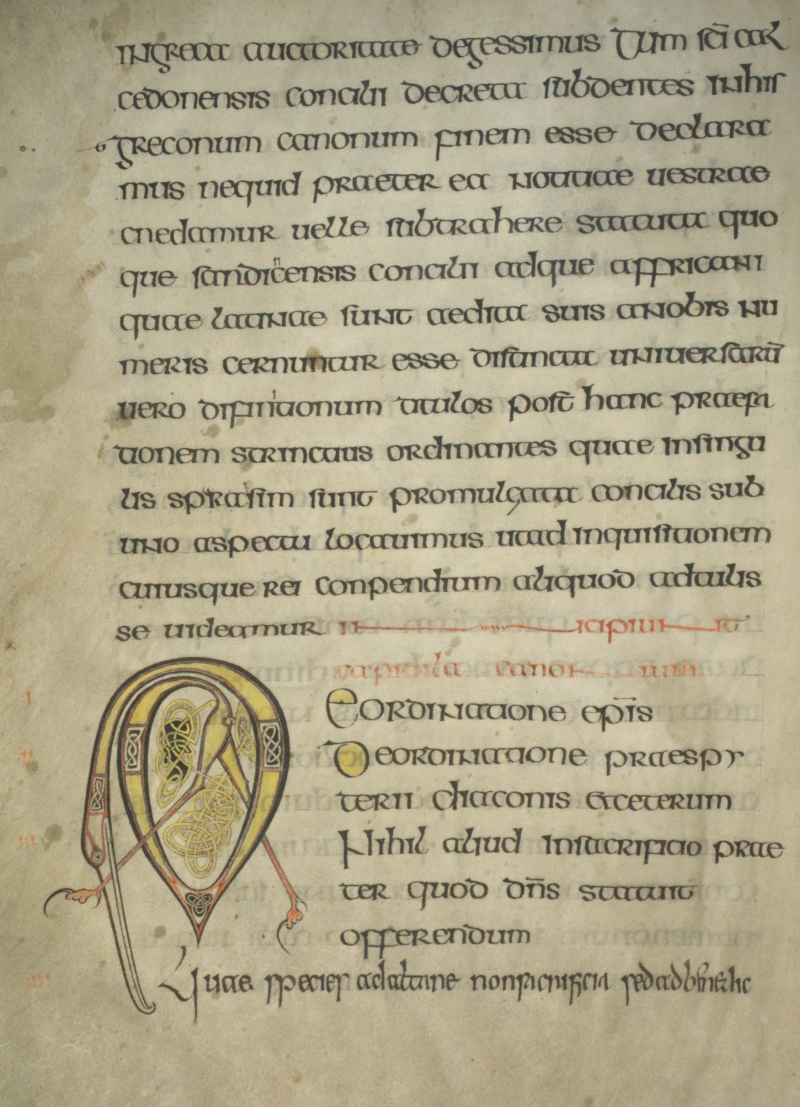 ingreat auctoritate degessimus Tum sc̄i cal
cedonensis concilii decreta subdentes in his
greconum canonum finem esse declara
mus nequid praeter ea notitiae uestrae
credamur uelle subtrahere statuta quo
que sardicensis concilii adque affricani
quae latinae sunt aedita suis anobis nu
meris cernuntur esse distincta uniuersarū
uero difinitionum titulos post hanc praefa
tionem scrincatis ordinantes quae insingu
lis sparsim sunt promulgata concilis sub
uno aspectu locauimus utad inquisitionem
cuiusque rei conpendium aliquod adtulis
se uideamur
capitula canon
Deordinatione ep̄is
Deordinatione praespy
terii diaconis etceterum
Nihil aliud insacrificio prae
ter quod dn̄s statuit
offerendum
Quae species adaltare non